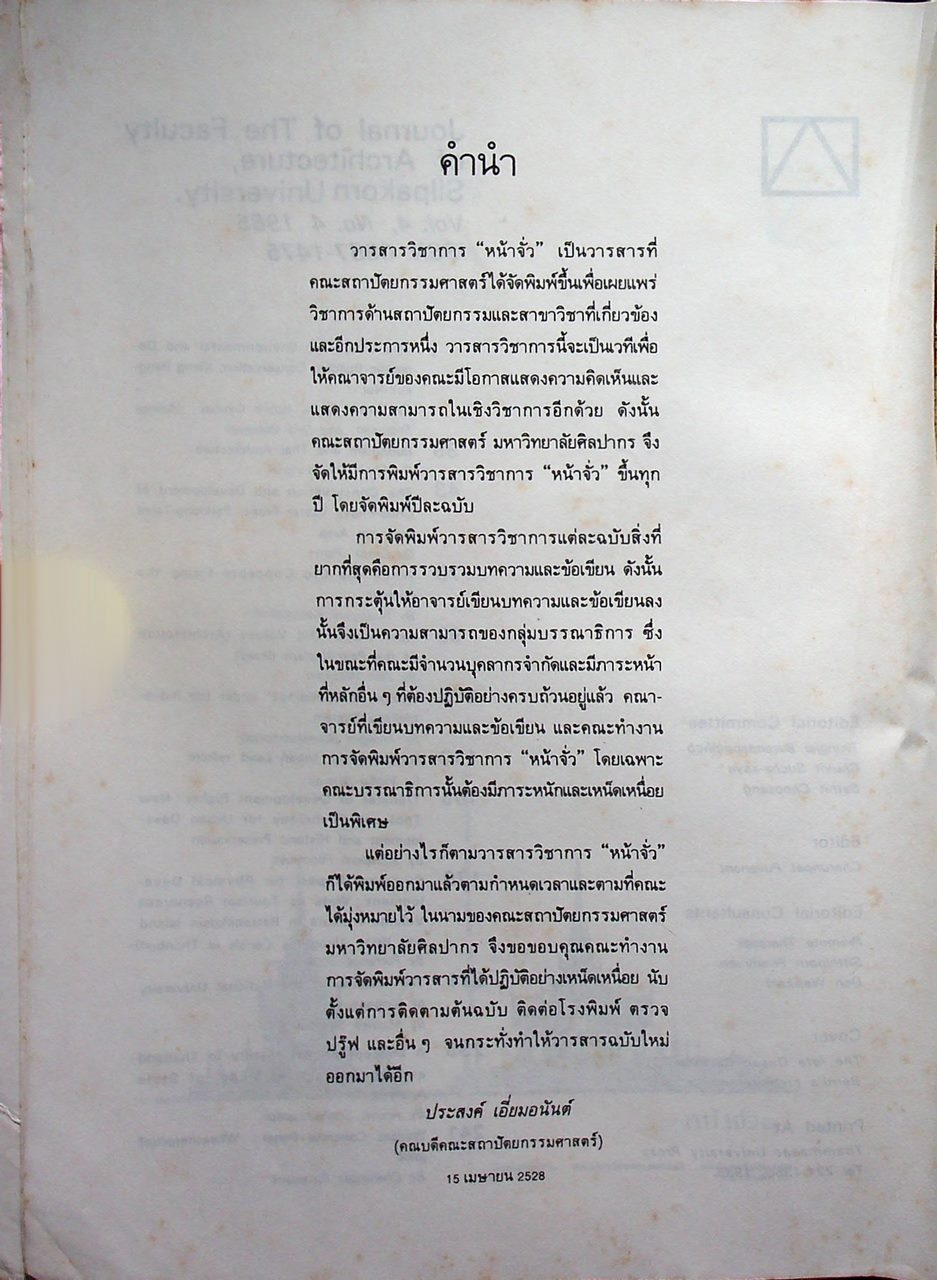 คำนำ
วารสารวิชาการ “หน้าจั่ว” เป็นวารสารที่
คณะสถาปัตยกรรมศาสตร์ได้จัดพิมพ์ขึ้นเพื่อเผยแพร่
วิชาการด้านสถาปัตยกรรมและสาขาวิชาที่เกี่ยวข้อง
และอีกประการหนึ่ง วารสารวิชาการนี้จะเป็นเวทีเพื่อ
ให้คณาจารย์ของคณะมีโอกาสแสดงความคิดเห็นและ
แสดงความสามารถในเชิงวิชาการอีกด้วย ดังนั้น
คณะสถาปัตยกรรมศาสตร์ มหาวิทยาลัยศิลปากร จึง
จัดให้มีการพิมพ์วารสารวิชาการ “หน้าจั่ว” ขึ้นทุก
ปี โดยจัดพิมพ์ปีละฉบับ
การจัดพิมพ์วารสารวิชาการแต่ละฉบับสิ่งที่
ยากที่สุดคือการรวบรวมบทความและข้อเขียน ดังนั้น
การกระตุ้นให้อาจารย์เขียนบทความและข้อเขียนลง
นั้นจึงเป็นความสามารถของกลุ่มบรรณาธิการ ซึ่ง
ในขณะที่คณะมีจำนวนบุคลากรจำกัดและมีภาระหน้า
ที่หลักอื่น ๆ ที่ต้องปฏิบัติอย่างครบถ้วนอยู่แล้ว คณา-
จารย์ที่เขียนบทความและข้อเขียน และคณะทำงาน
การจัดพิมพ์วารสารวิชาการ “หน้าจั่ว” โดยเฉพาะ
คณะบรรณาธิการนั้นต้องมีภาระหนักและเหน็ดเหนื่อย
เป็นพิเศษ
แต่อย่างไรก็ตามวารสารวิชาการ “หน้าจั่ว”
ก็ได้พิมพ์ออกมาแล้วตามกำหนดเวลาและตามที่คณะ
ได้มุ่งหมายไว้ ในนามของคณะสถาปัตยกรรมศาสตร์
มหาวิทยาลัยศิลปากร จึงขอขอบคุณคณะทำงาน
การจัดพิมพ์วารสารที่ได้ปฏิบัติอย่างเหน็ดเหนื่อย นับ
ตั้งแต่การติดตามต้นฉบับ ติดต่อโรงพิมพ์ ตรวจ
ปรู๊ฟ และอื่น ๆ จนกระทั่งทำให้วารสารฉบับใหม่
ออกมาได้อีก
ประสงค์ เอี่ยมอนันต์
(คณบดีคณะสถาปัตยกรรมศาสตร์)
15 เมษายน 2528